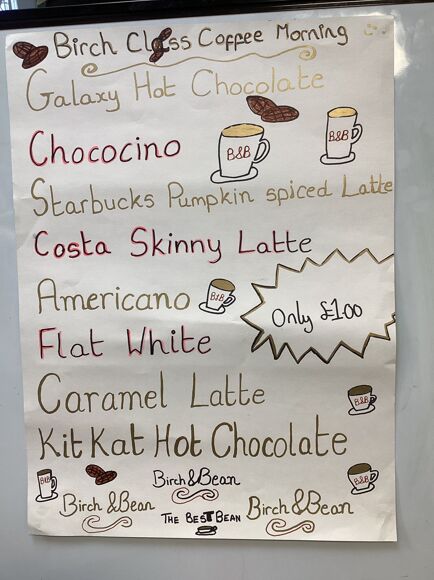 Birch Class Coffee Morning
Galaxy Hot Chocolate
Chococino
B&B
B&B
Starbucks Pumpkin spiced Latte
Costa Skinny Latte
Americano
B&B
Only £1.00
Flat White
Caramel Latte
B&B
KitKat Hot Chocolate
B&B
Birch&Bean
B&B
Birch&Bean
THE BEST BEAN
Birch&Bean